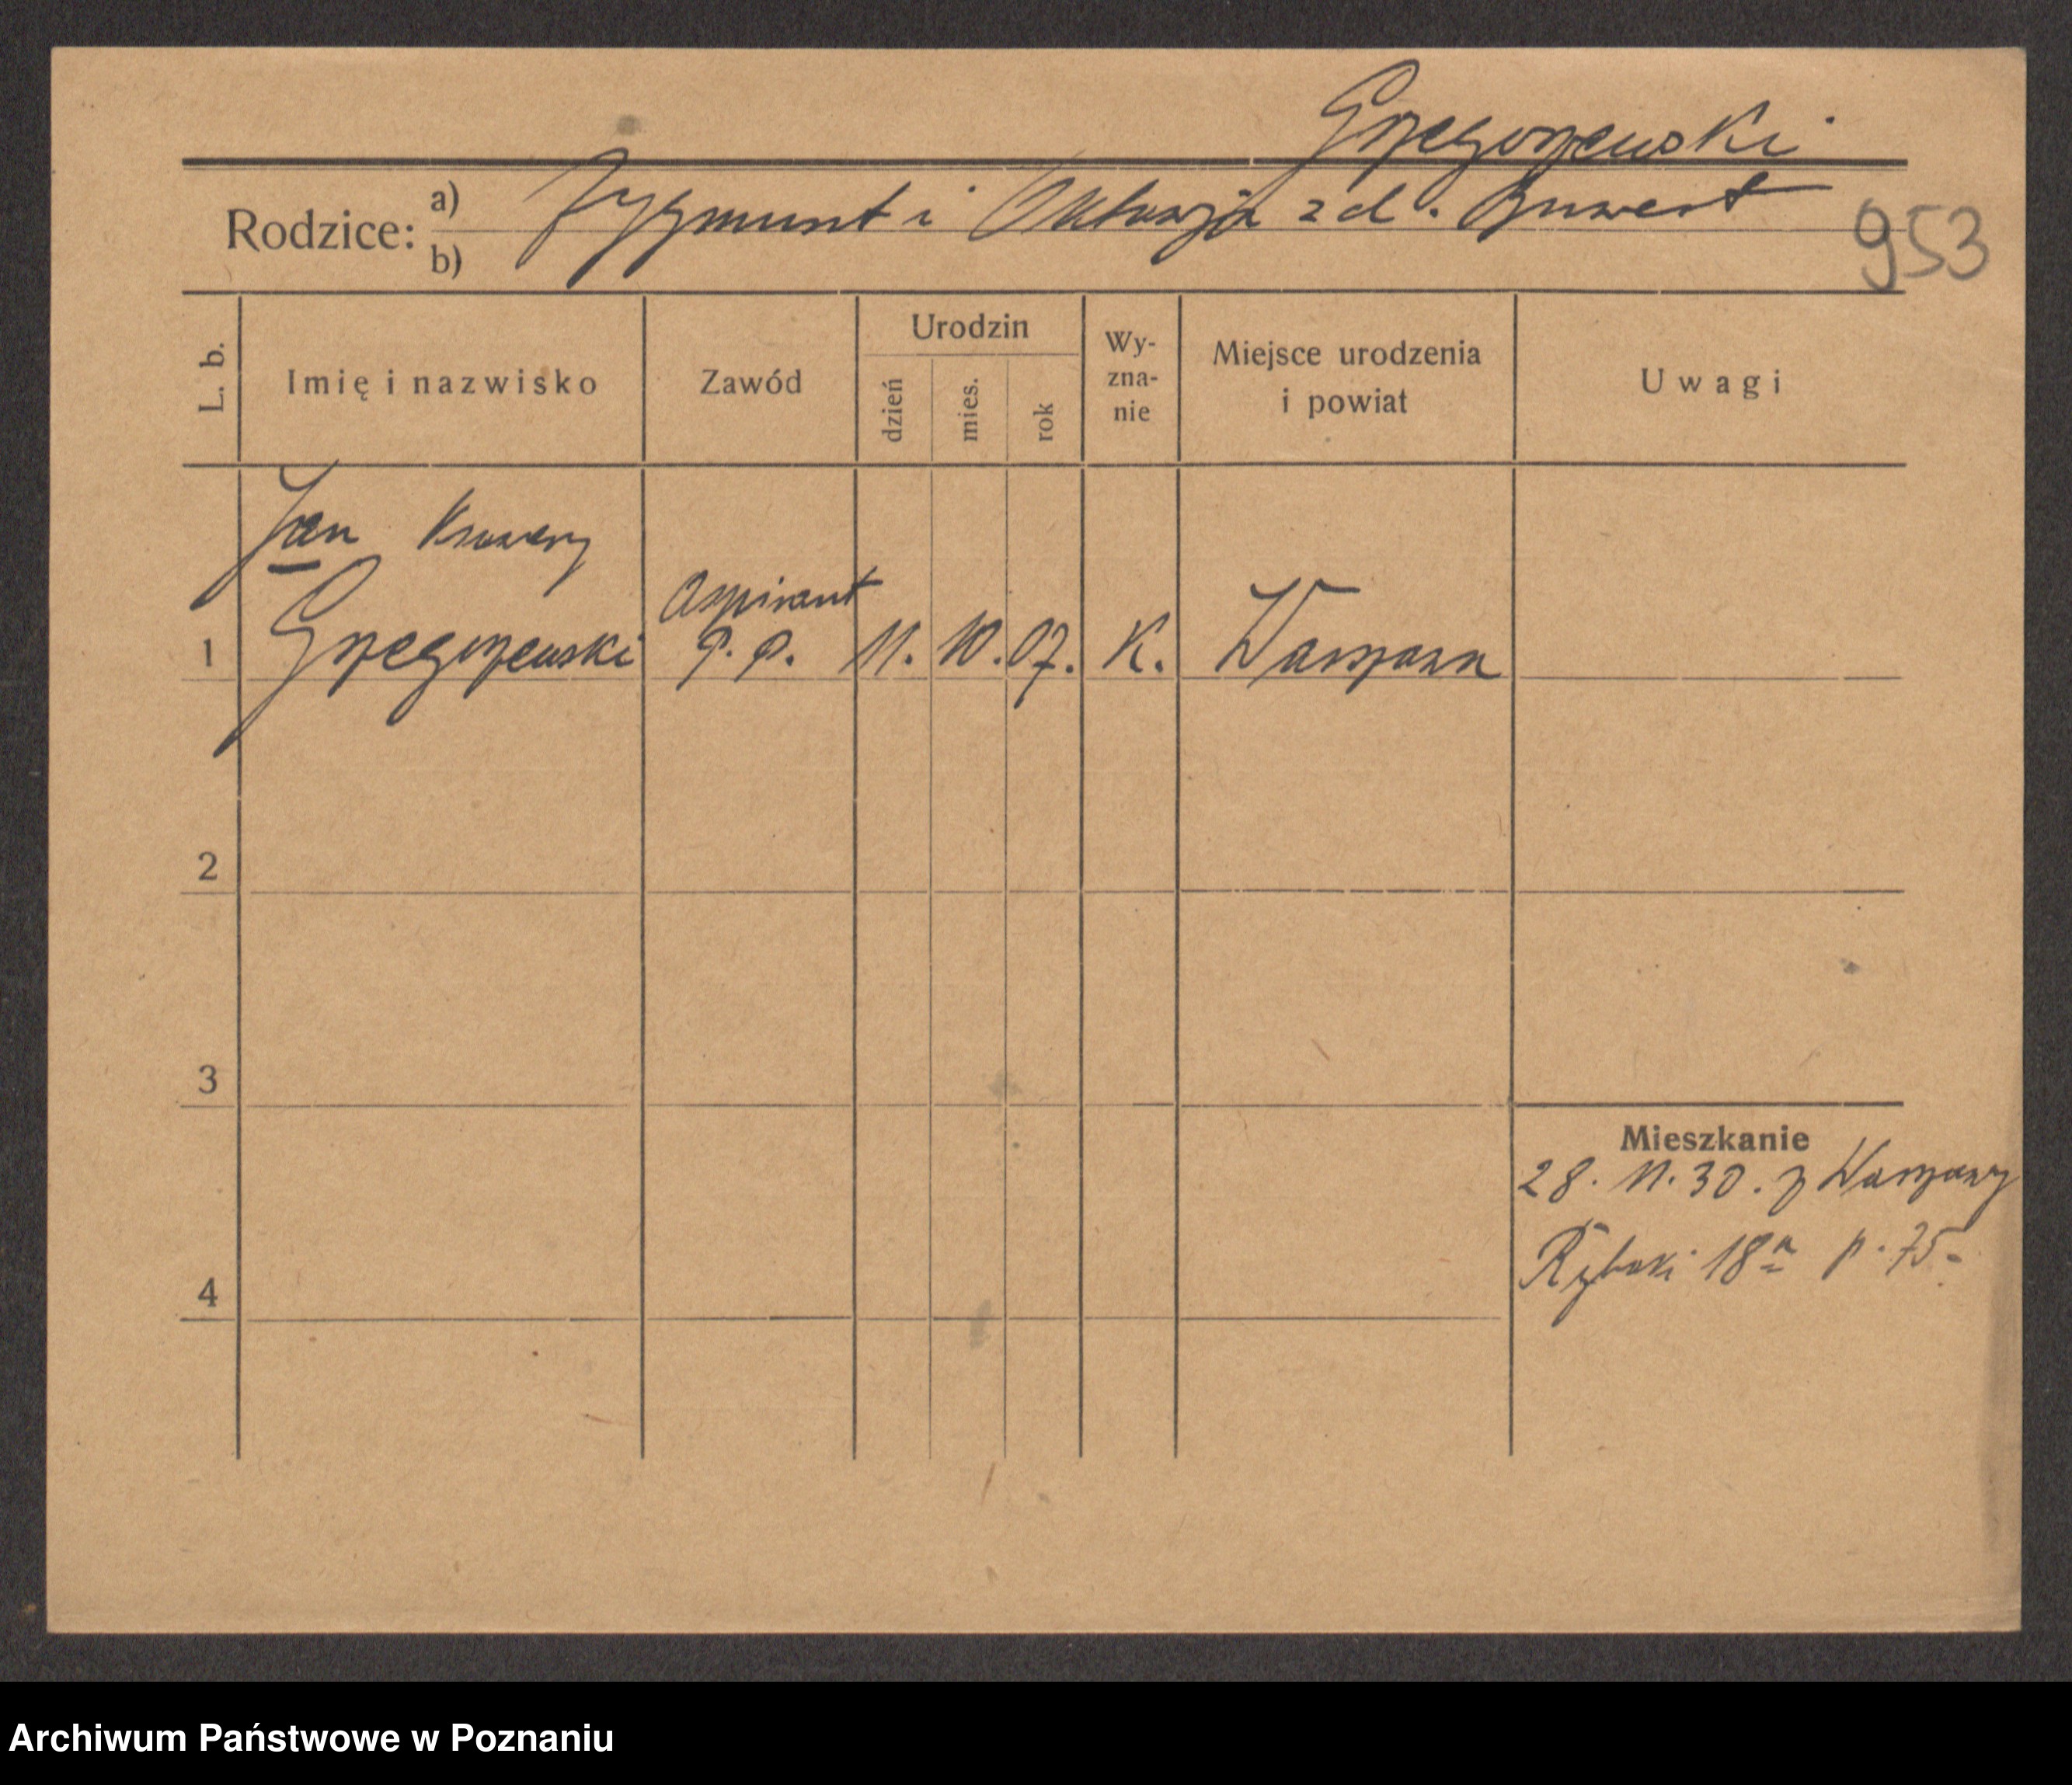 Grzegorzewski
Rodzice: a) Zygmunt i Oktawja z d.
b)
953
L. b. Imię i nazwisko Zawód Urodzin dzień mies. rok Wy-zna-nie Miejsce urodzenia i powiat Uwagi
Jan Ksawery
Aspirant
1 Grzegorzewski P. P. 11. 10. 07. K. Warszawa
2
3
Mieszkanie
28. 11. 30. z Warszawy
Rybaki 18a p. 75.
4
Archiwum Państwowe w Poznaniu